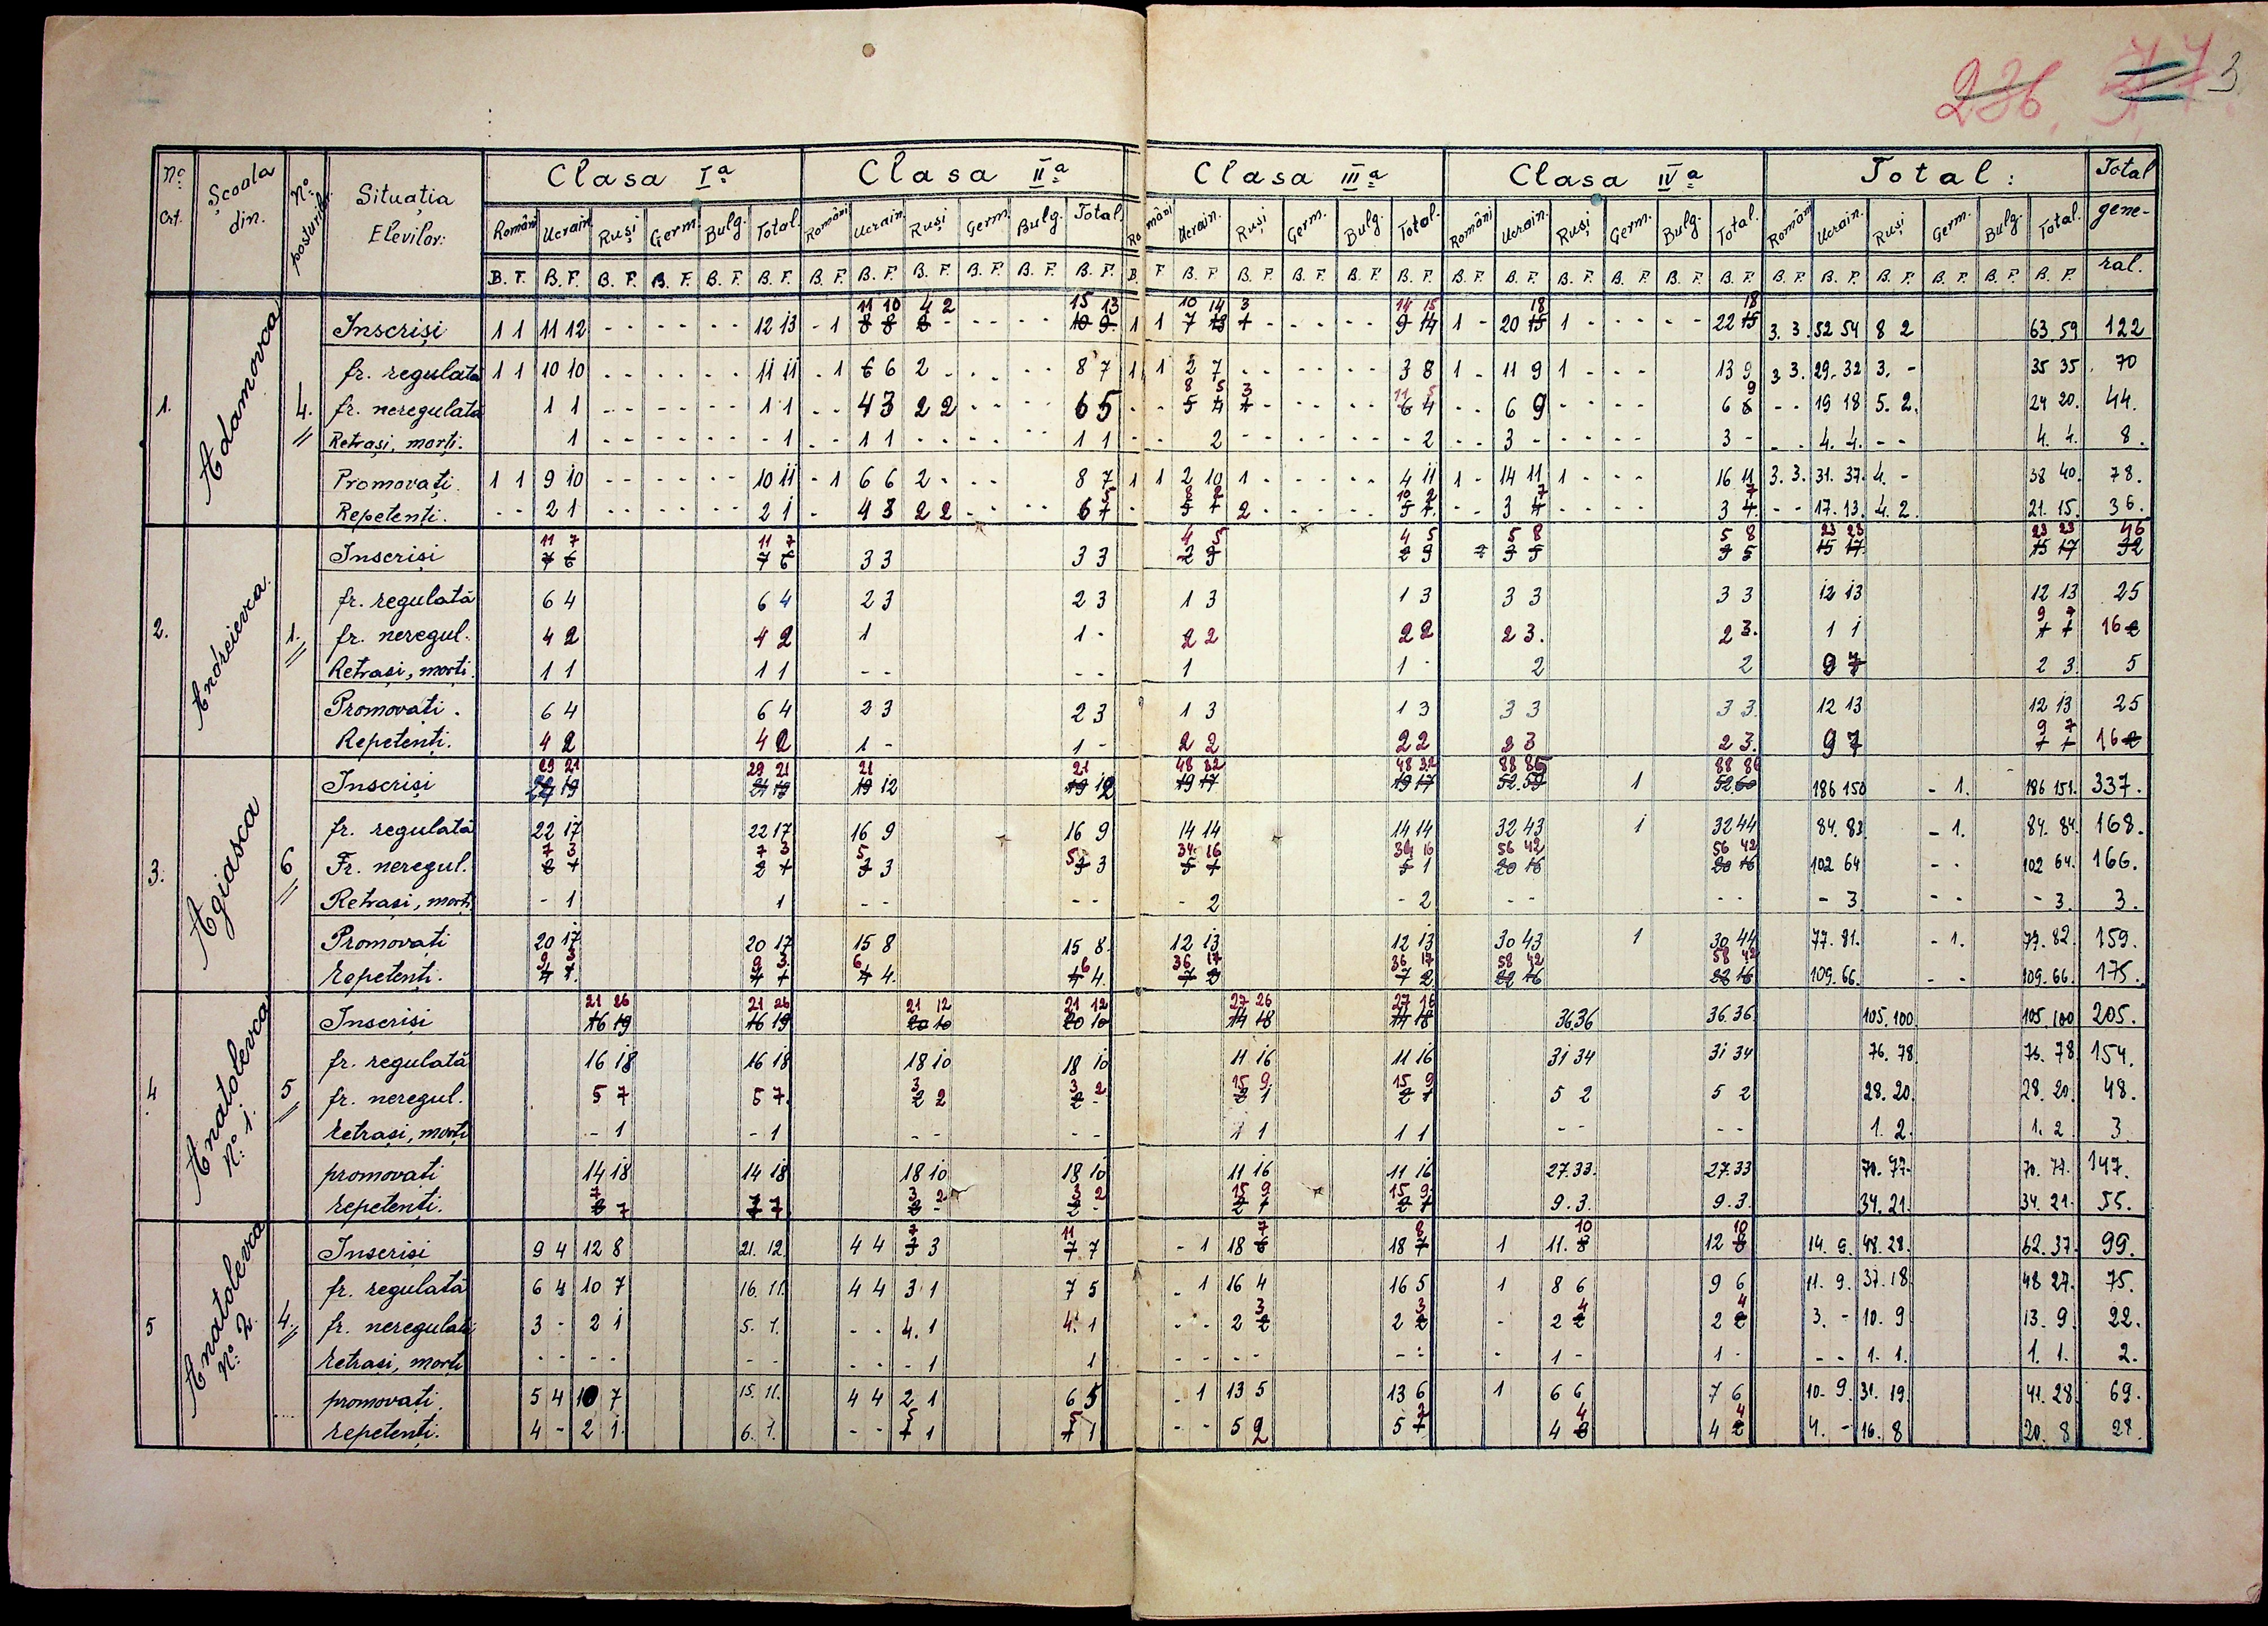 236. 77. 3
Nº Crt. Școala din. Nº posturilor. Situația Elevilor: Clasa Iª Clasa IIª Clasa IIIª Clasa IVª Total: Total gene-
Români Ucrain. Ruși Germ. Bulg. Total. Români Ucrain. Ruși Germ. Bulg. Total. Români Ucrain. Ruși Germ. Bulg. Total. Români Ucrain. Ruși Germ. Bulg. Total. Români Ucrain. Ruși Germ. Bulg. Total.
B. F. B. F. B. F. B. F. B. F. B. F. B. F. B. F. B. F. B. F. B. F. B. F. B. F. B. F. B. F. B. F. B. F. B. F. B. F. B. F. B. F. B. F. B. F. B. F. B. F. B. F. B. F. B. F. B. F. B. F. ral.
1. Adamovca 4.
Inscriși 1 1 11 12 - - - - - - 12 13 - 1 11 10 4 2 - - - - 15 13 1 1 10 14 3 - - - - - 14 15 1 - 20 18 1 - - - - - 22 18 3. 3. 52 54 8 2 63 59 122
fr. regulată 1 1 10 10 - - - - - - 11 11 - 1 6 6 2 - - - - 8 7 1 1 2 7 - - - - - - 3 8 1 - 11 9 1 - - - 13 9 3 3. 29. 32 3. - 35 35 70
fr. neregulată 1 1 - - - - - - 1 1 - - 4 3 2 2 - - - - 6 5 - - 8 5 3 - - - - - 11 5 - - 6 9 - - - - 6 9 - - 19 18 5. 2. 24 20. 44.
Retrași, morți. 1 - - - - - - - 1 - - 1 1 - - - - - - 1 1 - - 2 - - - - - - - 2 - - 3 - - - - - 3 - - - 4. 4. - - 4. 4. 8.
Promovați. 1 1 9 10 - - - - - - 10 11 - 1 6 6 2 - - - 8 7 1 1 2 10 1 - - - - - 4 11 1 - 14 11 1 - - - 16 11 3. 3. 31. 37. 4. - 38 40. 78.
Repetenți. - - 2 1 - - - - - - 2 1 - 4 3 2 2 - - - - 6 5 - 8 2 2 - - - - - 10 2 - - 3 7 - - - - 3 7 - - 17. 13. 4. 2. 21. 15. 36.
2. Andreievca. 1.
Inscriși 11 7 11 7 3 3 3 3 4 5 4 5 5 8 5 8 23 23 23 23 46
fr. regulată 6 4 6 4 2 3 2 3 1 3 1 3 3 3 3 3 12 13 12 13 25
fr. neregul. 4 2 4 2 1 1 - 2 2 2 2 2 3. 2 3. 1 1 9 7 16
Retrași, morți. 1 1 1 1 - - - - 1 1 - 2 2 9 7 2 3. 5
Promovați. 6 4 6 4 2 3 2 3 1 3 1 3 3 3 3 3. 12 13 12 13 25
Repetenți. 4 2 4 2 1 - 1 - 2 2 2 2 2 3 2 3. 9 7 9 7 16
3. Agiasca 6
Inscriși 29 21 29 21 21 12 21 12 48 32 48 32 88 85 1 88 86 186 150 - 1. 186 151. 337.
fr. regulată 22 17 22 17 16 9 16 9 14 14 14 14 32 43 1 32 44 84. 83. - 1. 84. 84. 168.
Fr. neregul. 7 3 7 3 5 3 5 3 34. 16 34 16 56 42 56 42 102 64 - - 102 64. 166.
Retrași, morți - 1 1 - - - - - 2 - 2 - - - - - 3 - - - 3. 3.
Promovați 20 17 20 17 15 8 15 8. 12 13 12 13 30 43 1 30 44 77. 81. - 1. 77. 82. 159.
repetenți. 9 3 9 3. 6 4. 6 4. 36 17 36 17 58 42 58 42 109. 66. - - 109. 66. 175.
4. Anatolevca Nº 1. 5
Inscriși 21 26 21 26 21 12 21 12 27 26 27 16 36 36 36. 36. 105. 100 105. 100 205.
fr. regulată 16 18 16 18 18 10 18 10 11 16 11 16 31 34 31 34 76. 78. 76. 78 154.
fr. neregul. 5 7 5 7. 3 2 3 2 15 9. 15 9 5 2 5 2 28. 20. 28. 20. 48.
retrași, morți - 1 - 1 - - - - 1 1 1 1 - - - - 1. 2. 1. 2 3
promovați 14 18 14 18 18 10 18 10 11 16 11 16 27. 33. 27. 33 70. 77. 70. 77. 147.
repetenți. 7 7 7 7 3 2 3 2 15 9 15 9 9. 3. 9. 3. 34. 21. 34. 21. 55.
5 Anatolevca Nº 2. 4.
Inscriși 9 4 12 8 21. 12. 4 4 7 3 11 7 - 1 18 7 18 8 1 11. 10 12 10 14. 9. 48. 28. 62. 37. 99.
fr. regulată 6 4 10 7 16. 11. 4 4 3 1 7 5 - 1 16 4 16 5 1 8 6 9 6 11. 9. 37. 18. 48 27. 75.
fr. neregulată 3 - 2 1 5. 1. - - 4. 1 4. 1 - - 2 3 2 3 - 2 4 2 4 3. - 10. 9 13. 9. 22.
retrași, morți - - - - - - - - - 1 1 - - - - - - - 1 - 1 - - - 1. 1. 1. 1. 2.
promovați. 5 4 10 7 15. 11. 4 4 2 1 6 5 - 1 13 5 13 6 1 6 6 7 6 10- 9. 31. 19. 41. 28. 69.
repetenți. 4 - 2 1. 6. 1. - - 5 1 5 1 - - 5 2 5 2 4 4 4 4 4. - 16. 8 20. 8 28.